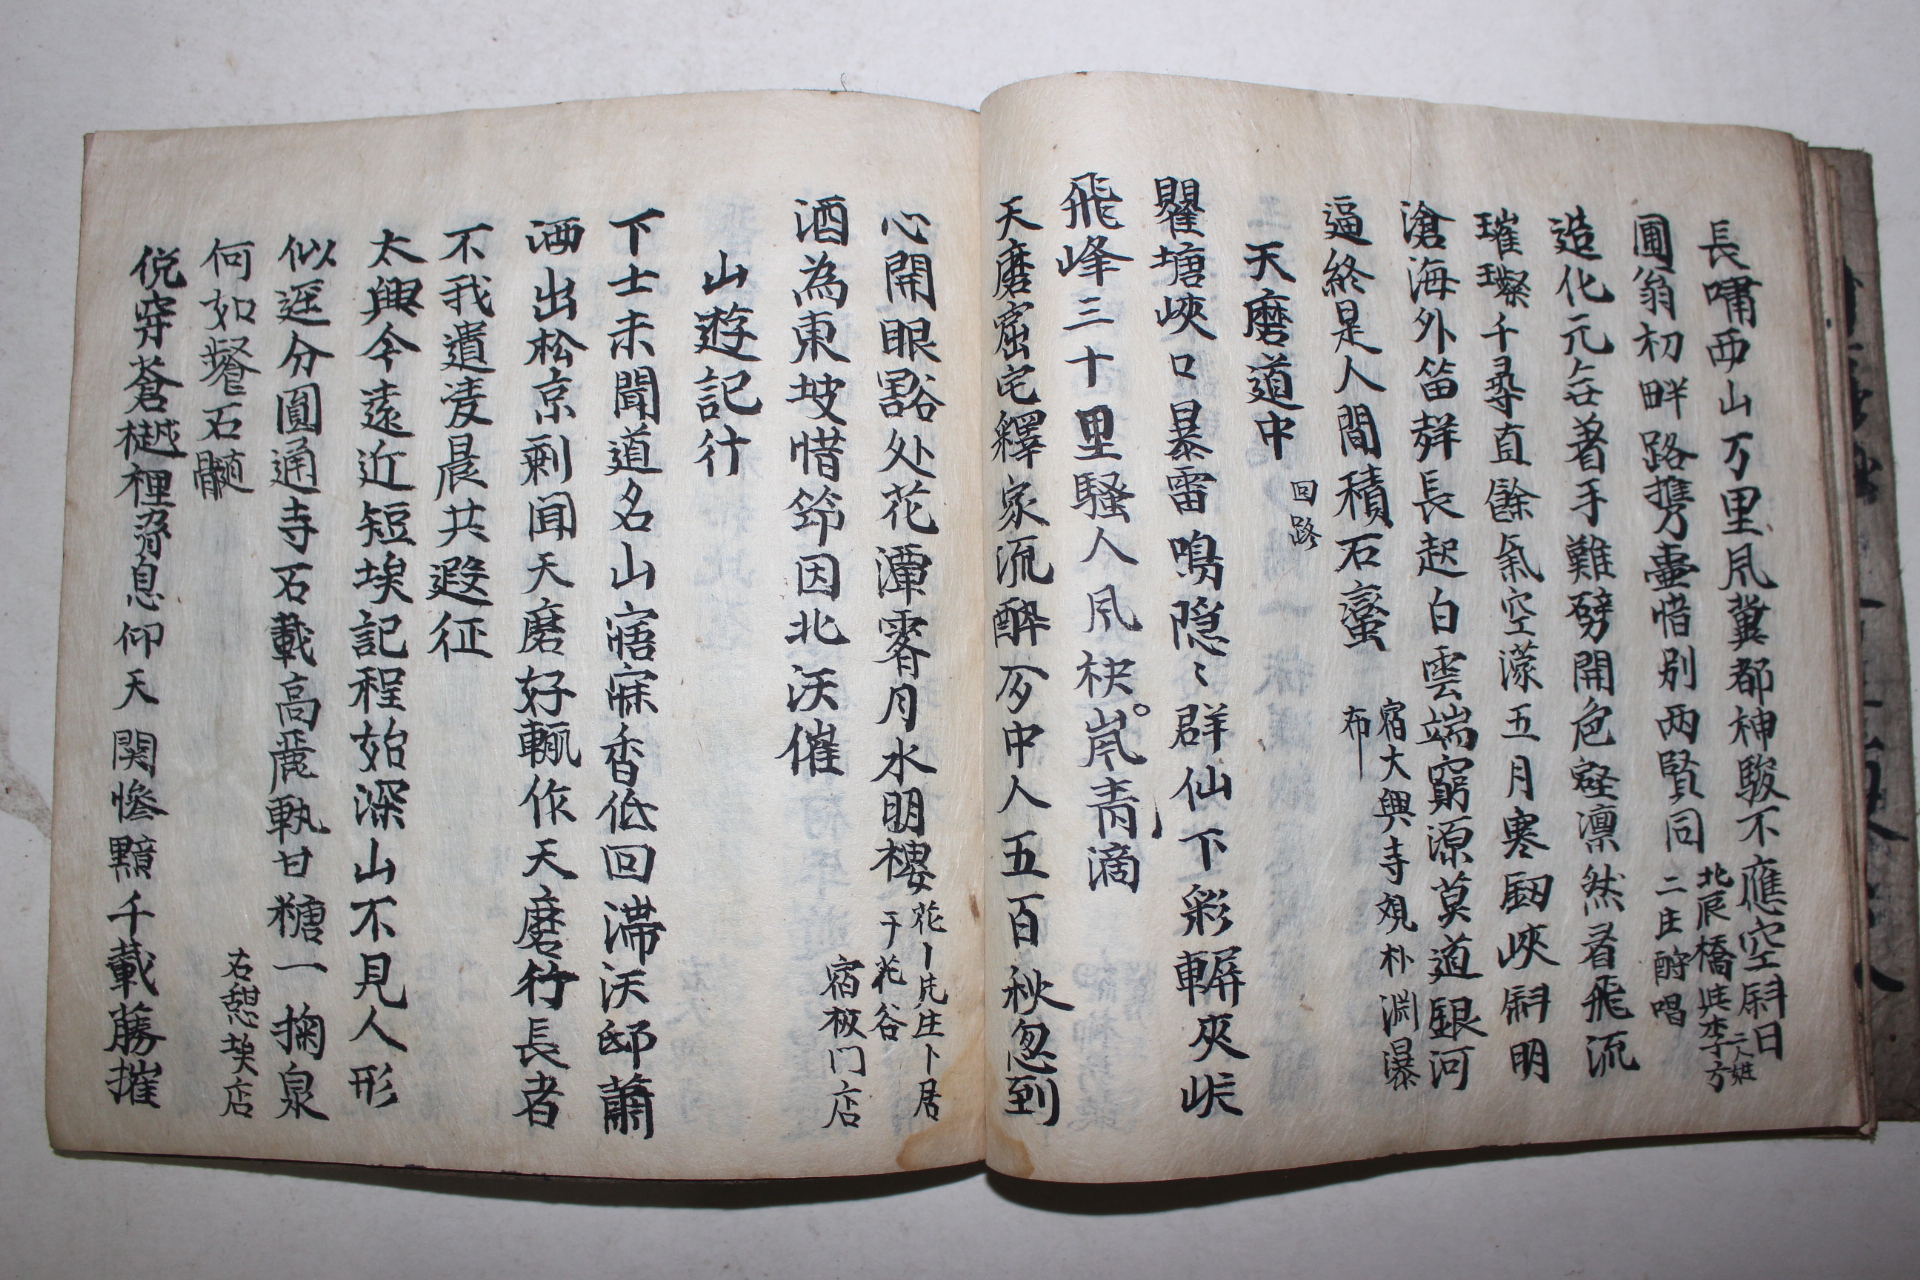 長嘯西山万里風冀都神駿不應空斜日
圃翁初畔路携壷惜別两賢同
北辰橋與李方
二庄酧唱
二人姓
造化元無着手難劈開危壑凛然看飛流
璀璨千尋直餘氣空濛五月寒劒峽斜明
滄海外笛聲長起白雲端窮源莫道銀河
逼終是人間積石蠻
宿大興寺観朴渊瀑
布
天磨道中
回路
瞿塘峽口暴雷鳴隐〻群仙下彩輧夾峽
飛峰三十里騷人風袂嵐青滴
天磨窟宅釋家流酔夢中人五百秋忽到
心開眼豁处花潭霽月水明樓
花潭先庄卜居
于花谷
宿板门店
酒為東坡惜節因北沃催
山遊記行
下士未聞道名山寤寐香低回滞沃邸蕭
洒出松京剩聞天磨好輒作天磨行長者
不我遺凌晨共遐征
太興今遠近短埃記程始深山不見人形
似逕分圓通寺石載高麗執甘糖一掬泉
何如餐石髓
右憇埃店
俛穿蒼樾裡脅息仰天関慘黯千載藤摧